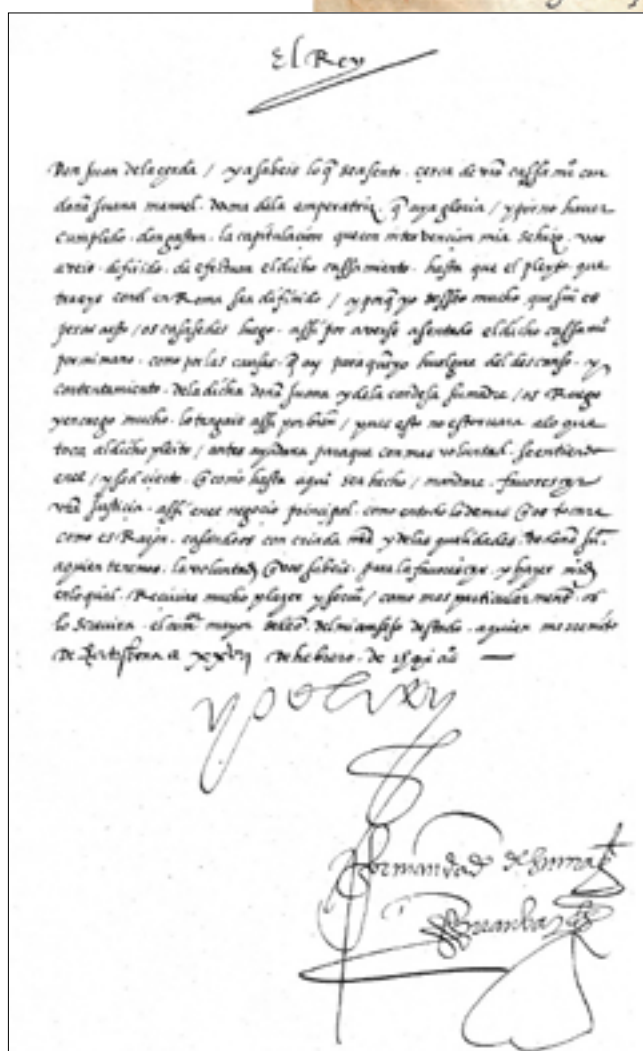 El Rey
Don Juan dela cerda / ya sabeis lo q̃ se asento. cerca de vr̃o cassamiº con
doña Juana manuel. Dama dela emperatriz q̃ aya gloria / y por no haver
cumplido. don gaston. la capitulacion que con intervencion mia se hizo. vos
aveis. deferido. de efectuar el dicho cassamiento. hasta que el pleyto que
traeys con el en Roma sea difinido / y porq̃ yo desseo mucho que sin es
perar a esto / os casasedes luego. assi por averse asentado el dicho cassamiº
por mi mano. como por las causas. q̃ ay para que yo huelgue del descanso. y
contentamiento. dela dicha doña Juana y dela condesa su madre / os Ruego
y encargo mucho. lo tengais assi por bien / pues esto no estorvara a lo que
toca al dicho pleito / antes ayudara para que con mas voluntad. se entienda
en el / y sed cierto. q̃ como hasta aqui se a hecho / mandare. favoresçer
vr̃a Justicia. assi en el negocio principal. como en todo lo demas q̃ os tocare
como es Razon. casandoos con criada mia y delas qualidades. de doña Juª.
a quien tenemos. la voluntad q̃ vos sabeis. para la favoresçer. y hazer mrd̃
en lo qual. Recivire mucho plazer y serviº / como mas particularmente. os
lo screvira. el comº mayor de leon. del mi consejo destado. a quien me remito
De Ratisbona a xxvij de hebrero. de
yo el Rey
Por mandado de su mag̃